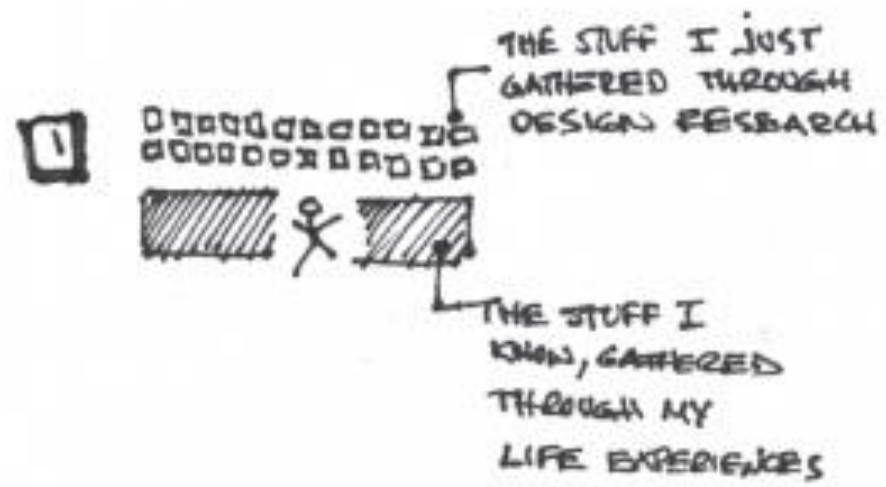 1
THE STUFF I JUST
GATHERED THROUGH
DESIGN RESEARCH
THE STUFF I
KNOW, GATHERED
THROUGH MY
LIFE EXPERIENCES